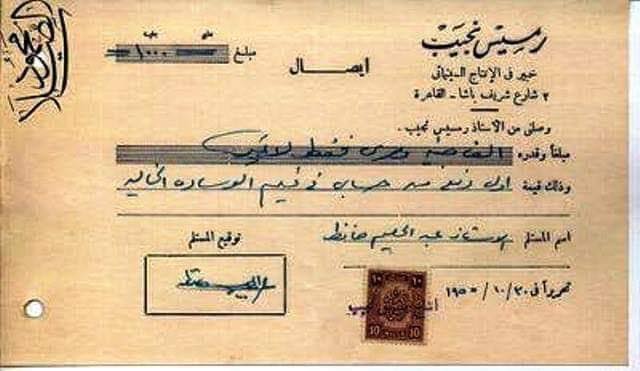 رمسيس نجيب
خبير فى الإنتاج السينمائى
٢ شارع شريف باشا - القاهرة
ايصال
مليم جنيه
مبلغ ١٠٠٠
وصلنى من الأستاذ رمسيس نجيب .
مبلغاً وقدره الف جنيه مصرى فقط لا غير
وذلك قيمة اول دفعه من حساب فى فيلم الوساده الخاليه
اسم المستلم الاستاذ عبد الحليم حافظ
توقيع المستلم
تحريراً فى ٣٠ / ١٠ / ١٩٥
١٠ ١٠
10 10